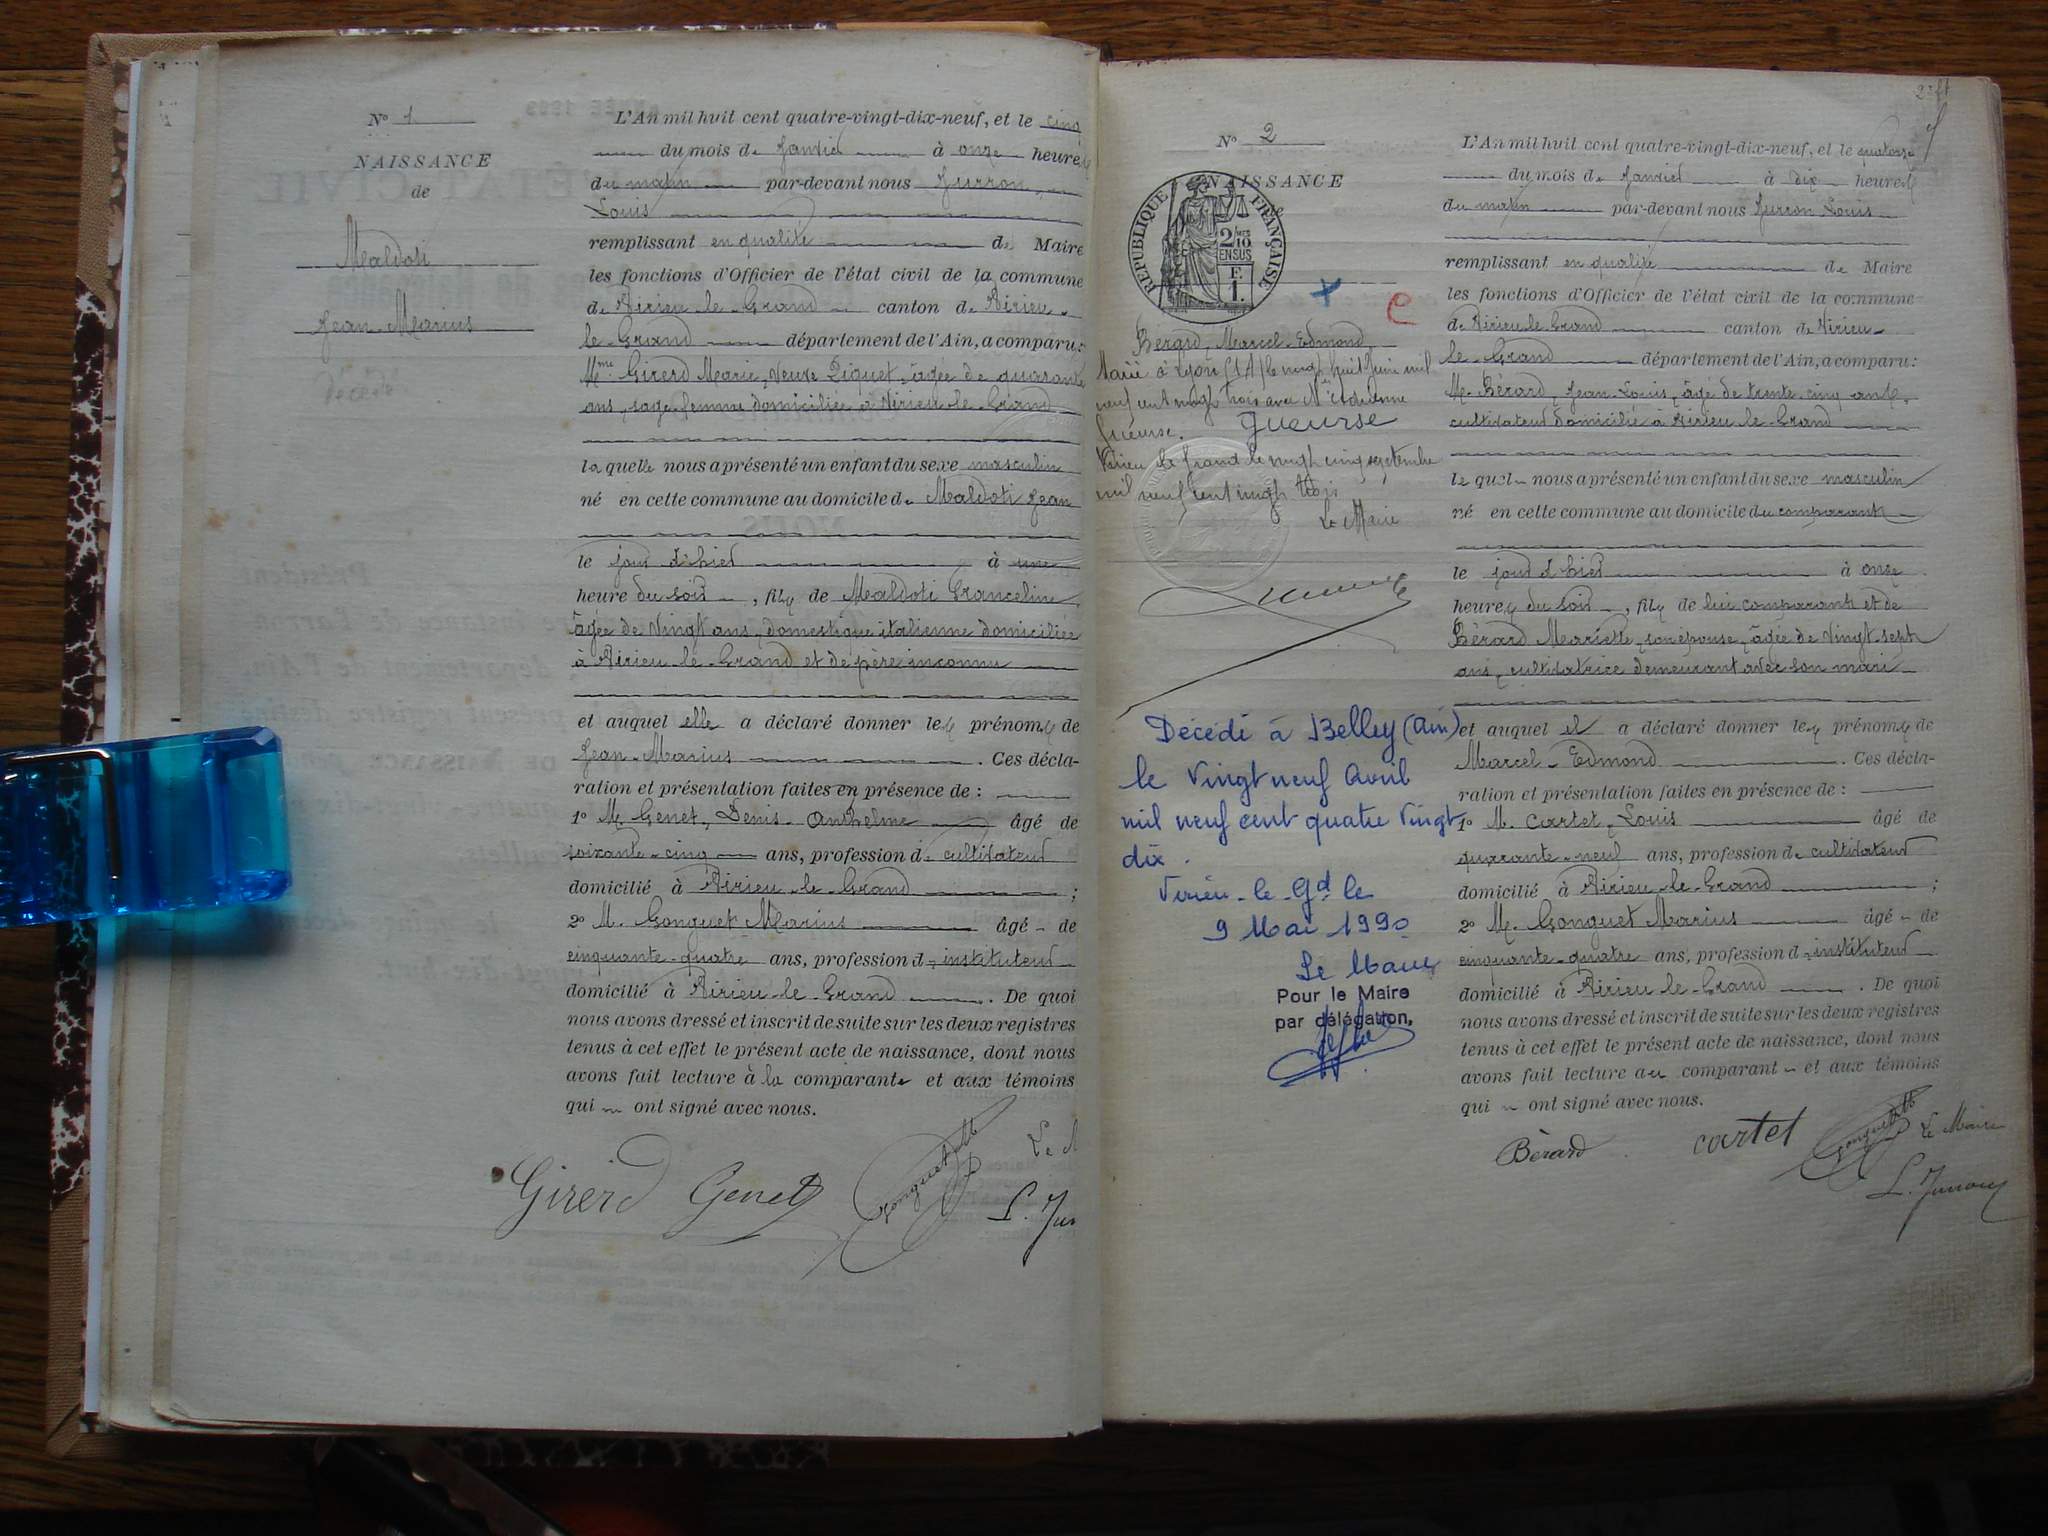 Nº 1
NAISSANCE
de
Maldoti
Jean-Marius
Décédé
L'An mil huit cent quatre-vingt-dix-neuf, et le cinq
du mois de Janvier à onze heures
du matin par-devant nous Jurron,
Louis
remplissant en qualité de Maire
les fonctions d'Officier de l'état civil de la commune
de Virieu-le-Grand canton de Virieu-
le-Grand département de l'Ain, a comparu:
Mme Girerd Marie, veuve Piquet, âgée de quarante
ans, sage-femme domiciliée à Virieu-le-Grand
laquelle nous a présenté un enfant du sexe masculin
né en cette commune au domicile de Maldoti Jean
le jour d'hier à une
heure du soir, fils de Maldoti Franceline
âgée de vingt ans, domestique italienne domiciliée
à Virieu-le-Grand et de père inconnu
et auquel elle a déclaré donner les prénoms de
Jean-Marius. Ces décla-
ration et présentation faites en présence de :
1º M. Genet, Denis-Anthelme âgé de
soixante-cinq ans, profession de cultivateur
domicilié à Virieu-le-Grand ;
2º M. Gonguet Marius âgé de
cinquante-quatre ans, profession d'instituteur
domicilié à Virieu-le-Grand. De quoi
nous avons dressé et inscrit de suite sur les deux registres
tenus à cet effet le présent acte de naissance, dont nous
avons fait lecture à la comparante et aux témoins
qui ont signé avec nous.
Girerd Genet Gonguet
Nº 2
NAISSANCE
RÉPUBLIQUE FRANÇAISE
2/10 MES
EN SUS
F.
1.
e
Bérard, Marcel-Edmond
Marié à Lyon (1A) le vingt huit Juin mil
neuf cent vingt trois avec
Gueurse. Gueurse
Virieu le Grand le vingt cinq septembre
mil neuf cent vingt trois
Le Maire
Décédé à Belley (Ain)
le vingt neuf avril
mil neuf cent quatre vingt
dix.
Virieu-le-Gd le
9 Mai 1990
Le Maire
Pour le Maire
par délégation,
L'An mil huit cent quatre-vingt-dix-neuf, et le quatorze
du mois de Janvier à dix heures
du matin par-devant nous Jurron Louis
remplissant en qualité de Maire
les fonctions d'Officier de l'état civil de la commune
de Virieu-le-Grand canton de Virieu-
le-Grand département de l'Ain, a comparu:
M. Bérard, Jean-Louis, âgé de trente-cinq ans,
cultivateur domicilié à Virieu-le-Grand
lequel nous a présenté un enfant du sexe masculin
né en cette commune au domicile du comparant
le jour d'hier à onze
heures du soir, fils de lui comparant et de
Bérard Mariette, son épouse, âgée de vingt-sept
ans, cultivatrice demeurant avec son mari
et auquel il a déclaré donner les prénoms de
Marcel-Edmond. Ces décla-
ration et présentation faites en présence de :
1º M. Cartet, Louis âgé de
quarante-neuf ans, profession de cultivateur
domicilié à Virieu-le-Grand ;
2º M. Gonguet Marius âgé de
cinquante-quatre ans, profession d'instituteur
domicilié à Virieu-le-Grand. De quoi
nous avons dressé et inscrit de suite sur les deux registres
tenus à cet effet le présent acte de naissance, dont nous
avons fait lecture au comparant et aux témoins
qui ont signé avec nous.
Bérard Cartet Gonguet Le Maire
L. Jurron